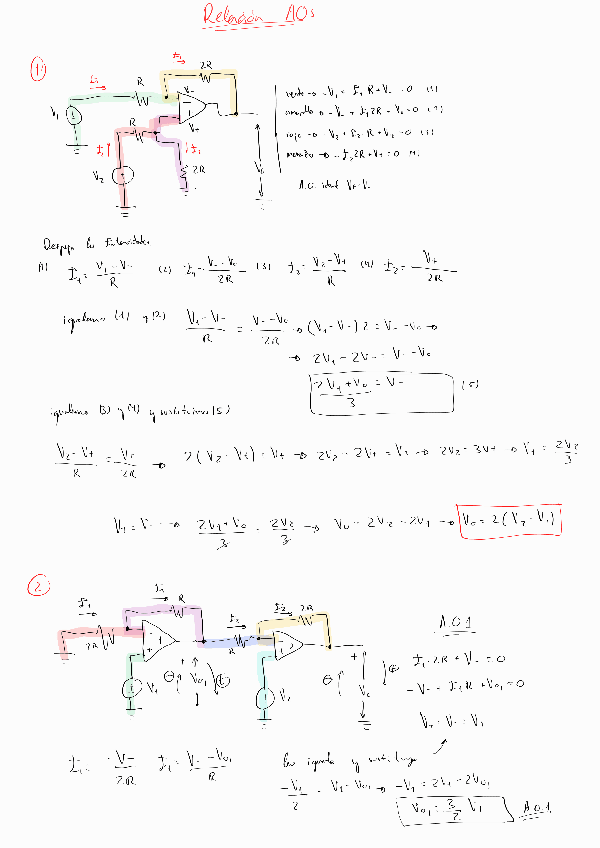 Relación AOs
1)
I₁ 2R
I₁ R
V₁
V-
V+
R
I₂ I₂
2R
V₂
V₀
verde → -V₁ + I₁R + V- = 0 (1)
amarillo → -V- + I₁2R + V₀ = 0 (2)
rojo → -V₂ + I₂R + V+ = 0 (3)
morado → -I₂2R + V+ = 0 (4)
A.O. ideal V+ = V-
Despejo las Intensidades
(1) I₁ = (V₁ - V-)/R (2) I₁ = (V- - V₀)/2R (3) I₂ = (V₂ - V+)/R (4) I₂ = V+/2R
igualamos (1) y (2) (V₁ - V-)/R = (V- - V₀)/2R → (V₁ - V-)2 = V- - V₀ →
→ 2V₁ - 2V- = V- - V₀
(2V₁ + V₀)/3 = V- (5)
igualamos (3) y (4) y sustituimos (5)
(V₂ - V+)/R = V+/2R → 2(V₂ - V+) = V+ → 2V₂ - 2V+ = V+ → 2V₂ = 3V+ → V+ = 2V₂/3
V+ = V- → (2V₁ + V₀)/3 = 2V₂/3 → V₀ = 2V₂ - 2V₁ → V₀ = 2(V₂ - V₁)
2)
I₁ R
I₁
2R
I₂ 2R
I₂
R
1
2
V₁
V₀₁
V₂
V₀
A.O.1
I₁·2R + V- = 0
-V- + I₁R + V₀₁ = 0
V+ = V- = V₁
I₁ = -V-/2R I₁ = (V- - V₀₁)/R
Las igualo y sustituyo
-V₁/2 = V₁ - V₀₁ → -V₁ = 2V₁ - 2V₀₁
V₀₁ = 3/2 V₁ A.O.1